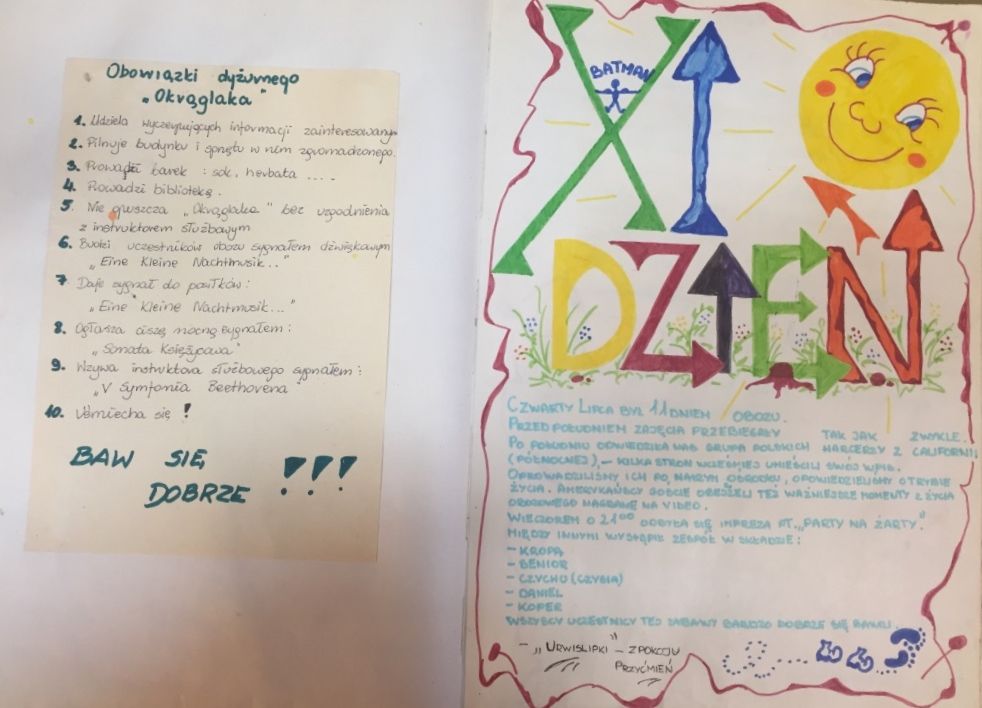 Obowiązki dyżurnego
„Okrąglaka"
1. Udziela wyczerpujących informacji zainteresowanym
2. Pilnuje budynku i sprzętu w nim zgromadzonego.
3. Prowadzi barek : sok, herbata ....
4. Prowadzi bibliotekę.
5. Nie opuszcza „Okrąglaka" bez uzgodnienia
z instruktorem służbowym
6. Budzi uczestników obozu sygnałem dźwiękowym
„Eine Kleine Nachtmusik.."
7. Daje sygnał do posiłków:
„Eine Kleine Nachtmusik..."
8. Ogłasza ciszę nocną sygnałem:
„Sonata Księżycowa"
9. Wzywa instruktora służbowego sygnałem:
„V Symfonia Beethovena
10. Uśmiecha się !
BAW SIĘ
DOBRZE !!!
XI
BATMAN
DZIEŃ
CZWARTY LIPCA BYŁ 11 DNIEM OBOZU.
PRZED POŁUDNIEM ZAJĘCIA PRZEBIEGAŁY TAK JAK ZWYKLE.
PO POŁUDNIU ODWIEDZIŁA NAS GRUPA POLSKICH HARCERZY Z CALIFORNII
(PÓŁNOCNEJ), – KILKA STRON WCZEŚNIEJ UMIEŚCILI SWÓJ WPIS.
OPROWADZILIŚMY ICH PO NASZYM OŚRODKU, OPOWIEDZIELIŚMY O TRYBIE
ŻYCIA. AMERYKAŃSCY GOŚCIE OBEJRZELI TEŻ WAŻNIEJSZE MOMENTY Z ŻYCIA
OBOZOWEGO NAGRANE NA VIDEO.
WIECZOREM O 21⁰⁰ ODBYŁA SIĘ IMPREZA PT. „PARTY NA ŻARTY".
MIĘDZY INNYMI WYSTĄPIŁ ZESPÓŁ W SKŁADZIE:
– KROPA
– SENIOR
– CZYCHU (CZYSIA)
– DANIEL
– KOPER
WSZYSCY UCZESTNICY TEJ ZABAWY BARDZO DOBRZE SIĘ BAWILI.
– „URWISLIPKI" – Z POKOJU
PRZYĆMIEŃ